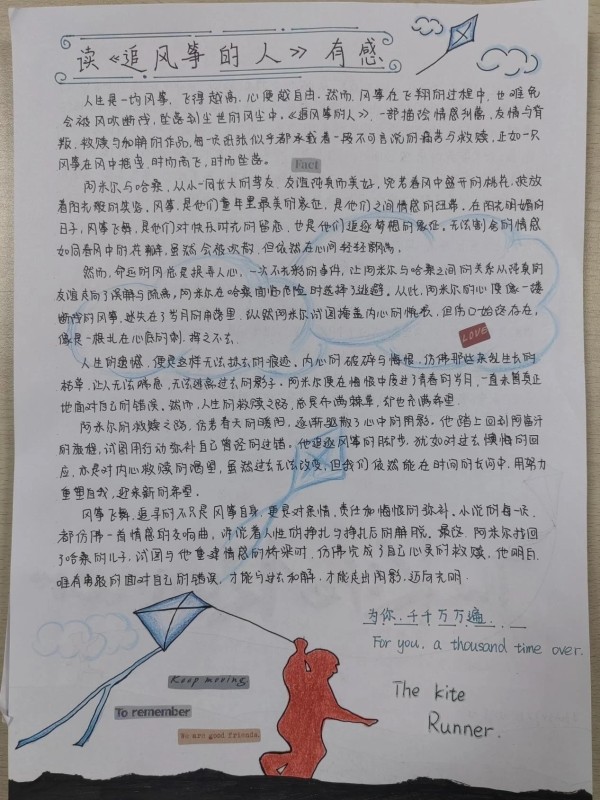 读《追风筝的人》有感
人生是一场风筝，飞得越高，心便越自由。然而，风筝在飞翔的过程中，也难免
会被风吹断线，坠落到尘世的风尘中。《追风筝的人》，一部描绘情感羁绊、友情与背
叛、救赎与和解的作品，每一纸张似乎都承载着一段不可言说的痛苦与救赎，正如一只
风筝在风中摇曳，时而高飞，时而坠落。
Fact
阿米尔与哈桑，从小一同长大的挚友，友谊纯真而美好，宛若春风中盛开的桃花，绽放
着阳光般的笑容。风筝，是他们童年里最美的象征，是他们之间情感的纽带。在阳光明媚的
日子，风筝飞舞，是他们对快乐时光的留恋，也是他们追逐梦想的象征。无法割舍的情感
如同春风中的花瓣，虽然会被吹散，但依然在心间轻轻飘荡。
然而，命运的风总是捉弄人心，一次不光彩的事件，让阿米尔与哈桑之间的关系从纯真的
友谊走向了误解与疏离。阿米尔在哈桑面临危险时选择了逃避。从此，阿米尔的心便像一搜
断线的风筝，迷失在了岁月的角落里。纵然阿米尔试图掩盖内心的愧疚，但伤口始终存在，
像是一根扎在心底的刺，挥之不去。
LOVE
人生的遗憾，便是这样无法抹去的痕迹。内心的破碎与悔恨，仿佛那些杂乱生长的
枯草，让人无法喘息，无法逃离过去的影子。阿米尔便在悔恨中度过了青春的岁月，一直未曾真正
地面对自己的错误。然而，人生的救赎之路，总是布满荆棘，却也充满希望。
阿米尔的救赎之路，仿若春天的暖阳，逐渐驱散了心中的阴影。他踏上回到阿富汗
的旅程，试图用行动弥补自己曾经的过错。他追逐风筝的脚步，犹如对过去懊悔的回
应，亦是对内心救赎的渴望，虽然过去无法改变，但我们依然能在时间的长河中，用努力
重塑自我，迎来新的希望。
风筝飞舞，追寻的不只是风筝自身，更是对亲情、责任和悔恨的弥补。小说的每一次
都仿佛一首情感的交响曲，诉说着人性的挣扎与挣扎后的解脱。最终，阿米尔找回
了哈桑的儿子，试图与他重建情感的桥梁时，仿佛完成了自己心灵的救赎，他明白，
唯有勇敢的面对自己的错误，才能与过去和解，才能走出阴影，迈向光明。
为你，千千万万遍。
For you, a thousand time over.
Keep moving
To remember
We are good friends.
The kite
Runner.